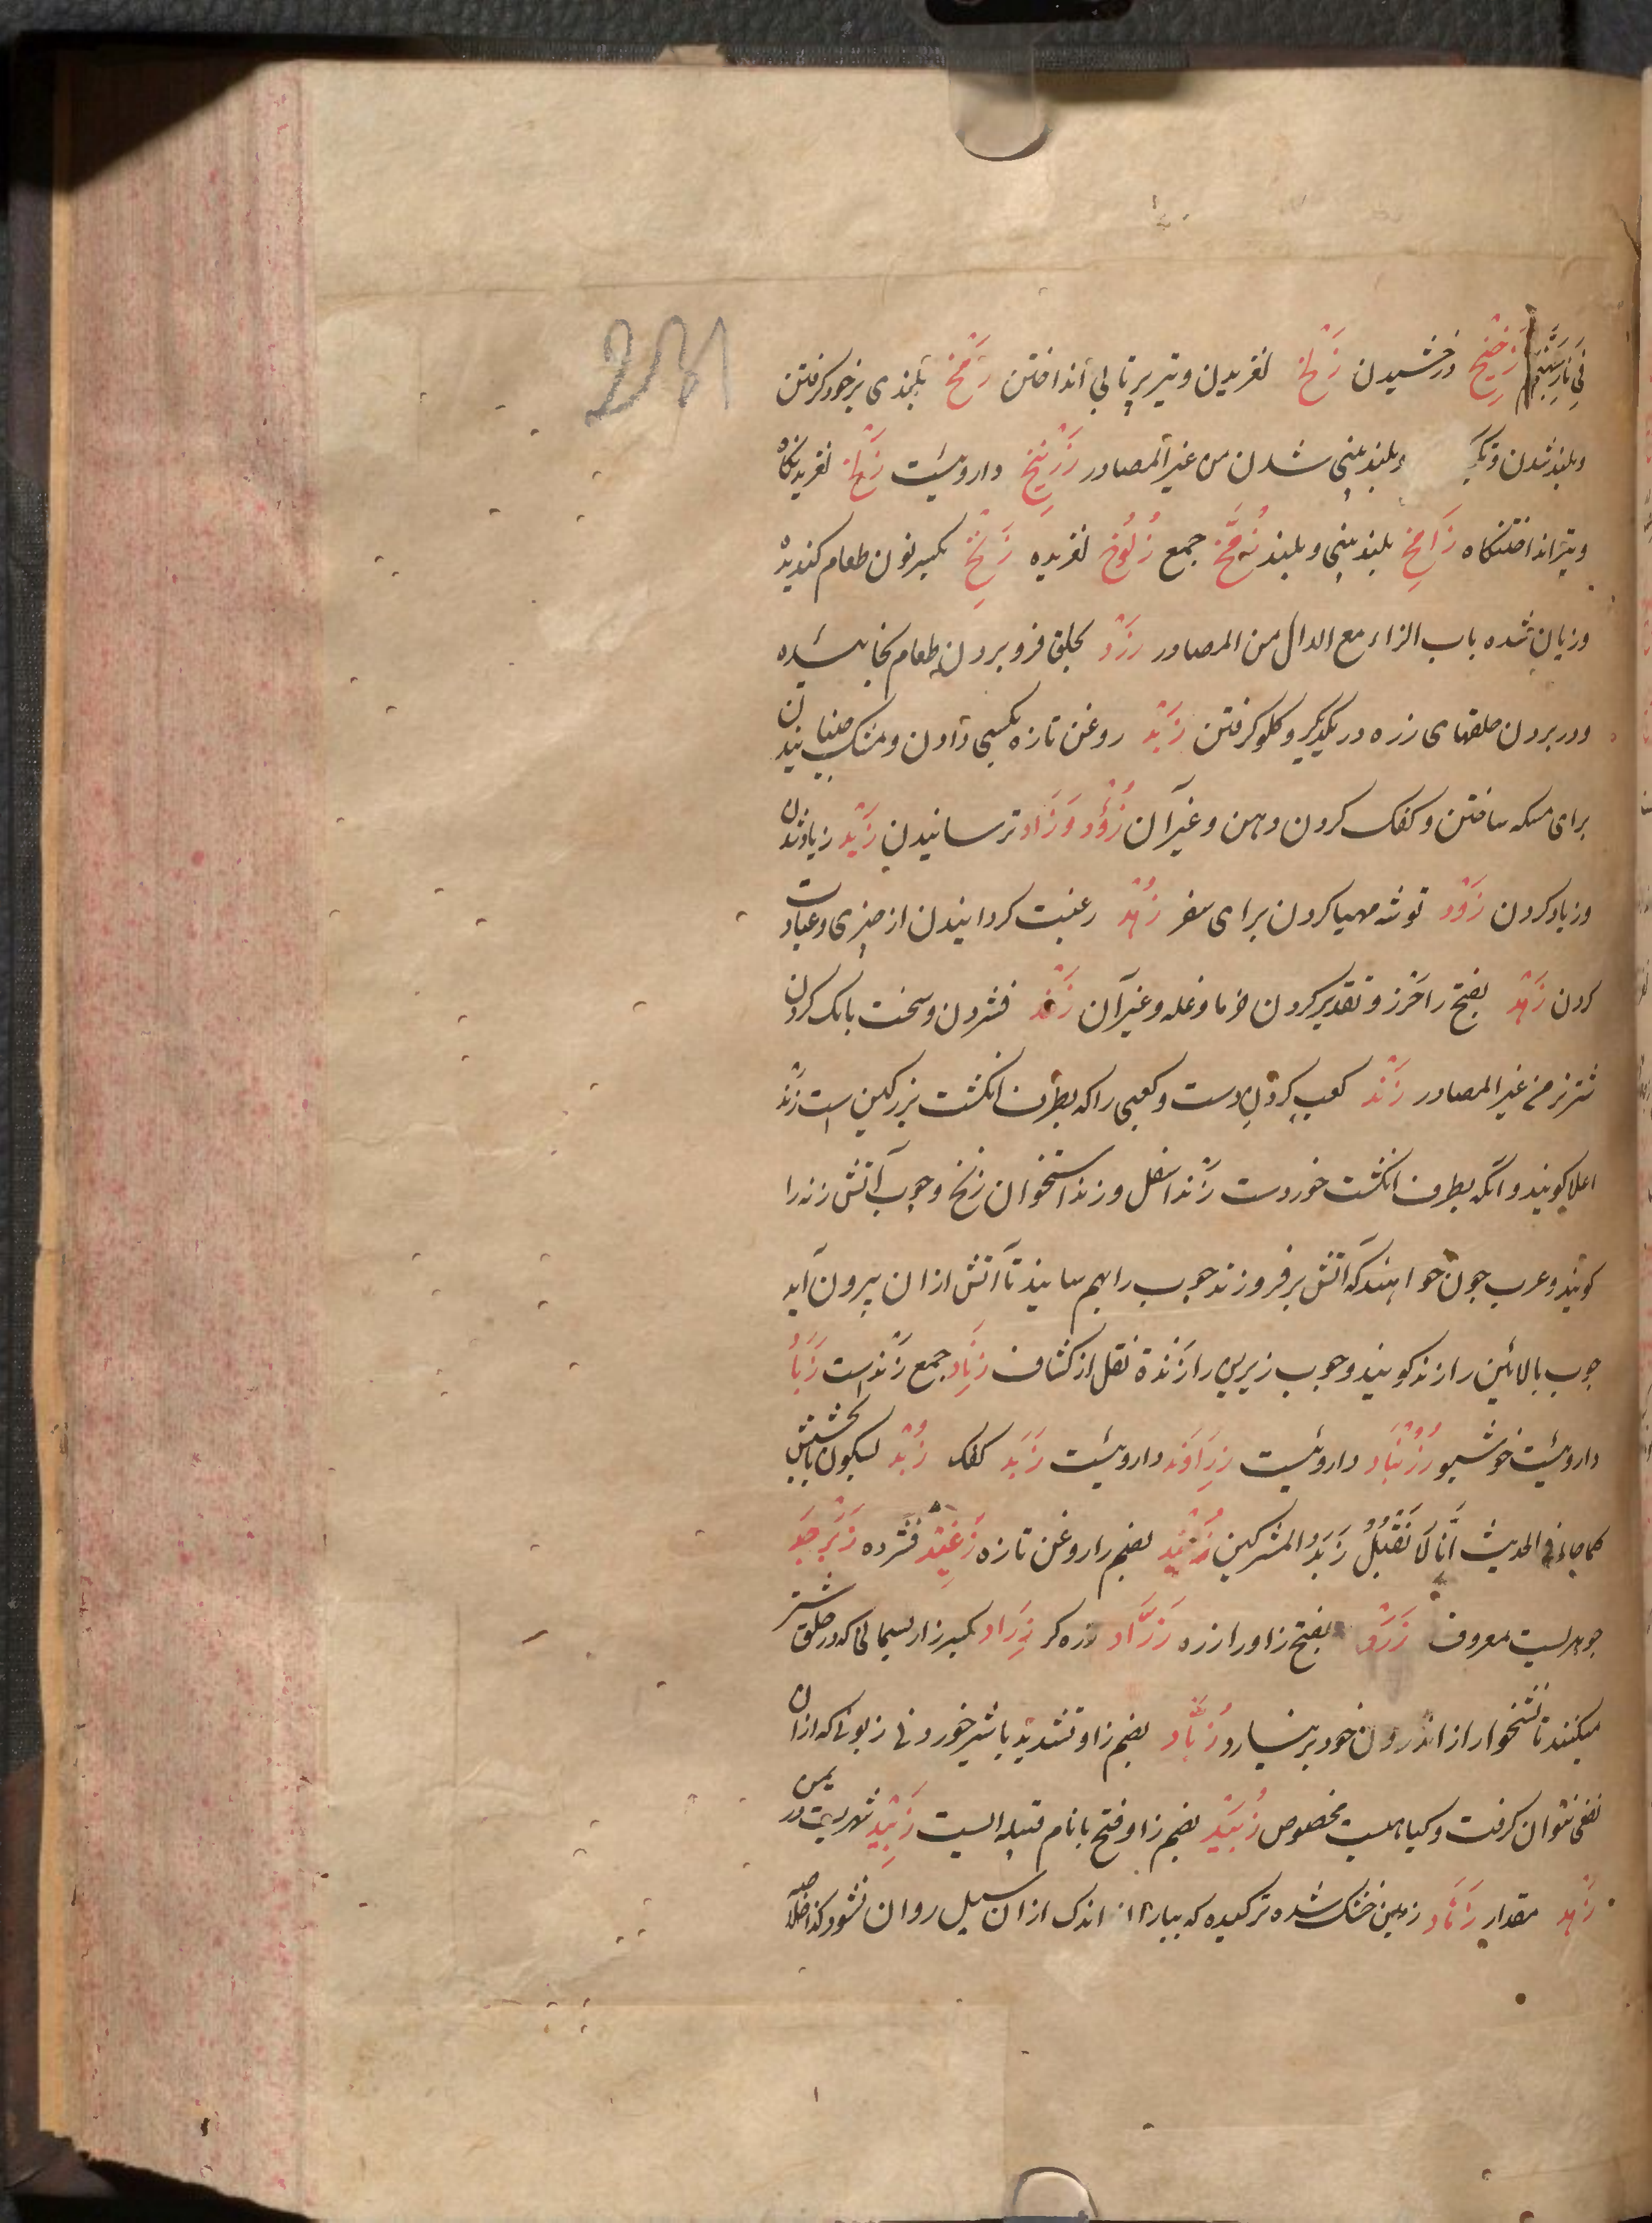 زخیخ درخشیدن زلخ لغزیدن و تیر پرتابی انداختن زمخ بلندی برخود گرفتن
و بلند شدن و تکبر و بلند بینی شدن من غیر المصادر زرنیخ داروئیست زلخ لغزیدنکاه
و تیر انداختنکاه زامخ بلند بینی و بلند زمخ جمع زلوخ لغزیده زنخ بکسر نون طعام کندیده
و زیان شده باب الزاء مع الدال من المصادر زرد بحلق فرو بردن طعام نخائیده
و در بردن حلقهای زره در یکدیکر و کلو کرفتن زبد روغن تازه بکسی دادن و مشک جنبانیدن
برای مسکه ساختن و کفک کردن دهن و غیر آن زؤد و زاد ترسانیدن زید زیاد شدن
و زیاد کردن زود توشه مهیا کردن برای سفر زهد رغبت کردانیدن از چیزی و عبادت
کردن زهد بفتح زا حزر و تقدیر کردن خرما و غله و غیر آن زغد فشردن و سخت بانک کردن
شتر نر من غیر المصادر زند کعب دست و کعبی را که بطرف انکشت بزرکین است زند
اعلا کویند و آنکه بطرف انکشت خوردست زند اسفل و زند استخوان زنخ و چوب آتش زنه را
کویند و عرب چون خواهند که آتش بر فروزند چوب را بهم سایند تا آتش ازان بیرون آید
چوب بالائین را زند کویند و چوب زیرین را زندة نقل از کشاف زناد جمع زند است زباد
داروئیست خوشبو زرنباد داروئیست زراوند داروئیست زبد کفک زبد بسکون با بخشش
کما جاء فی الحدیث انا لا نقبل زبد المشرکین زبد بضم زا روغن تازه زغید فشرده زبرجد
جوهریست معروف زرد بفتح زا و را زره زراد زره کر زراد بکسر زا ریسمانی که در حلق شتر
میکنند تا نشخوار از اندرون خود بر نیارد زباد بضم زا و تشدید با شیر خورونا زبونا که ازان
نفعی نتوان کرفت و کیاهیست مخصوص زبید بضم زا و فتح با نام قبیله ایست زبید شهریست در یمن
زهد مقدار زهاد زمین خشک شده ترکیده که بباران اندک ازان سیل روان نشود